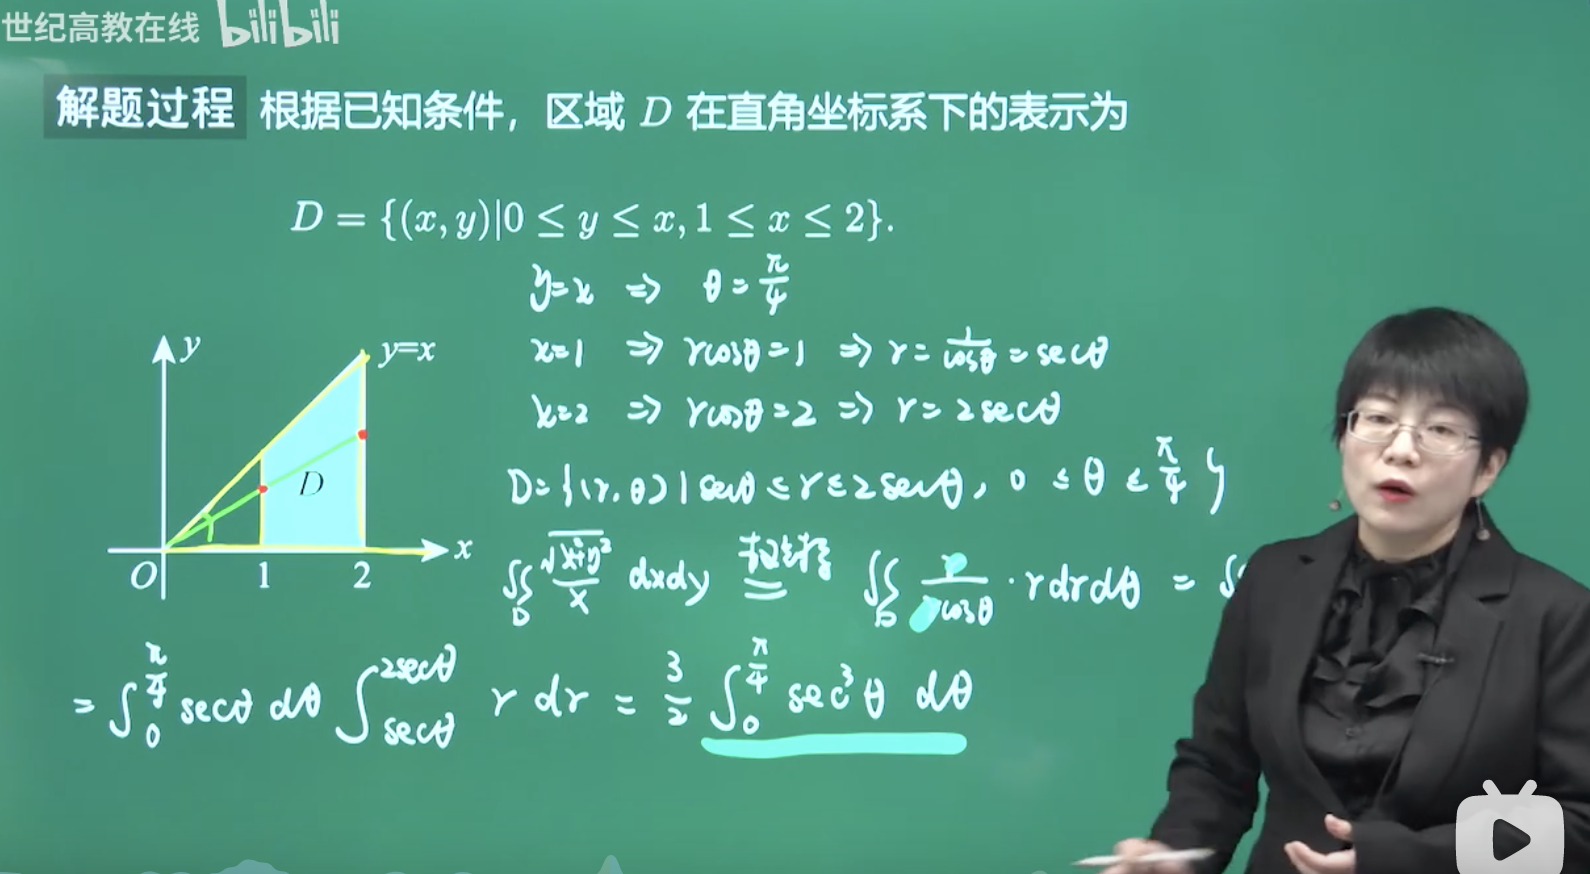 世纪高教在线 bilibili
解题过程 根据已知条件，区域 D 在直角坐标系下的表示为
D = {(x, y)|0 ≤ y ≤ x, 1 ≤ x ≤ 2}.
y=x ⇒ θ=π/4
x=1 ⇒ rcosθ=1 ⇒ r=1/cosθ=secθ
x=2 ⇒ rcosθ=2 ⇒ r=2secθ
D={(r,θ)|secθ≤r≤2secθ, 0≤θ≤π/4}
∬_D √(x²+y²)/x dxdy = ∬_D r/(rcosθ)·rdrdθ =
= ∫_0^{π/4} secθ dθ ∫_{secθ}^{2secθ} r dr = 3/2 ∫_0^{π/4} sec³θ dθ
y
y=x
D
O 1 2 x